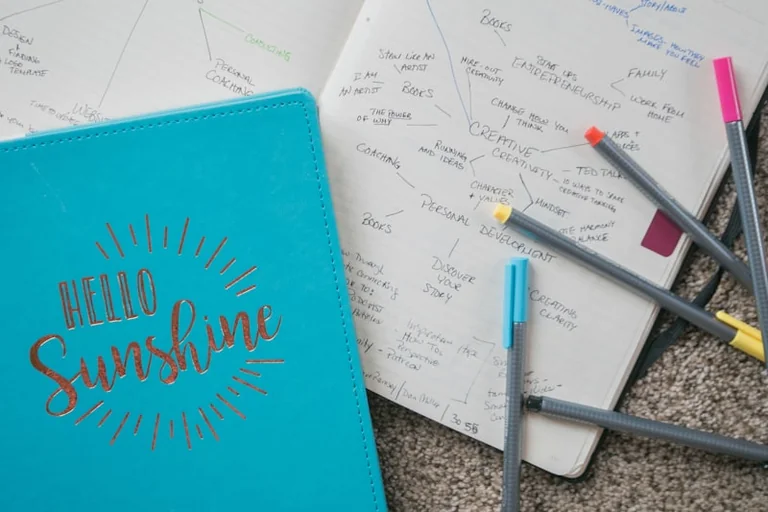 DESIGN
&
FINDING
A LOGO
TEMPLATE
CONSULTING
PERSONAL
COACHING
WEBSITE
HELLO
Sunshine
BOOKS
STORY/ABOUT
IMAGES HOW THEY
MAKE YOU FEEL
STEAL LIKE AN
ARTIST
I AM
AN ARTIST
BOOKS
THE POWER
OF WHY
CREATIVITY
START UPS
ENTREPRENEURSHIP
FAMILY
WORK FROM
HOME
CHANGE HOW YOU
THINK
CREATIVE
CREATIVITY
APPS &
TED TALK
CREATIVE THINKING
COACHING
RUNNING
AND IDEAS
CHARACTER
& VALUES
MINDSET
HARMONY
BALANCE
PERSONAL DEVELOPMENT
BOOKS
DISCOVER
YOUR
STORY
CREATING
CLARITY
Inspiration
How Tos
Perspective
Patreon
30 55